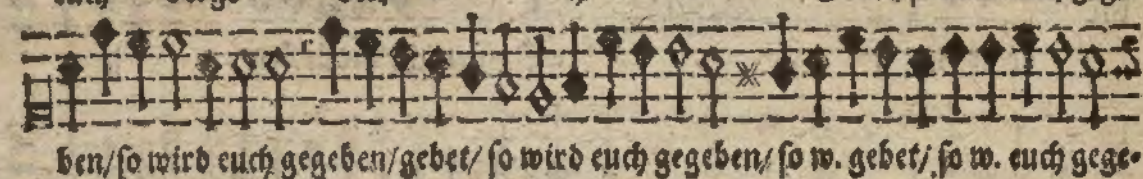 ben/so wird euch gegeben/gebet/ so wird euch gegeben/ so w. gebet/ so w. euch gege-